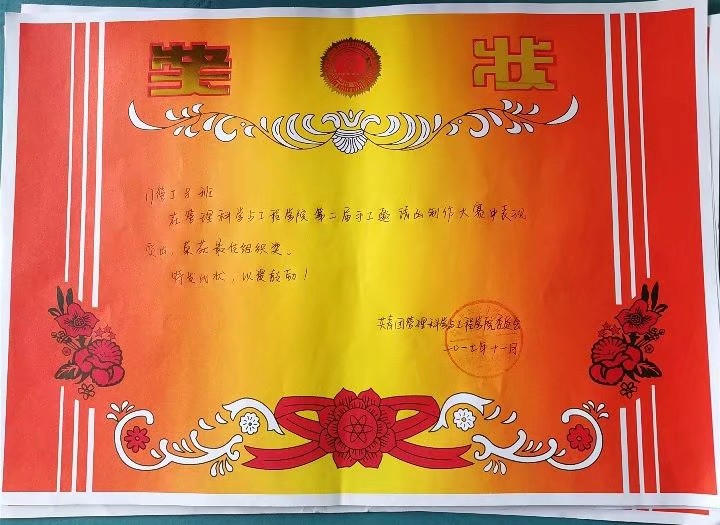 奖 状
班
在管理科学与工程学院第二届手工邀请函制作大赛中表现
突出,荣获最佳组织奖。
特发此状,以资鼓励!
共青团管理科学与工程学院委员会
二〇一七年十一月